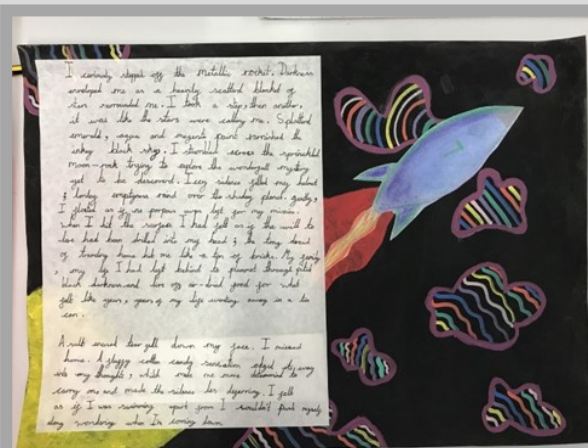 I curiously stepped off the metallic rocket. Darkness
enveloped me as a heavily scattered blanket of
stars surrounded me. I took a step, then another,
it was like the stars were calling me. Splatted
emerald, aqua and magenta paint varnished the
inky black sky. I stumbled across the sprinkled
moon-rock trying to explore the mystery
yet to be discovered. silence filled my helmet
& emptyness over the planet. gently,
I floated as if no purpose was left for my mission.
When I hit the surface I had felt as if the will to
live had been drilled into my head & the long
of traveling home hit me like a ton of bricks. My family
, my life I had left behind to through
black darkness and live off air-dried food for what
felt like years, years of my life away in a tin
can.
A tear fell down my face. I missed
home. A fluffy cotton candy sensation away
into my thoughts, which made me more determined to
carry on and made the silence less deafening. I felt
as if I was swimming apart from I wouldn't find myself
wondering when I'm coming down